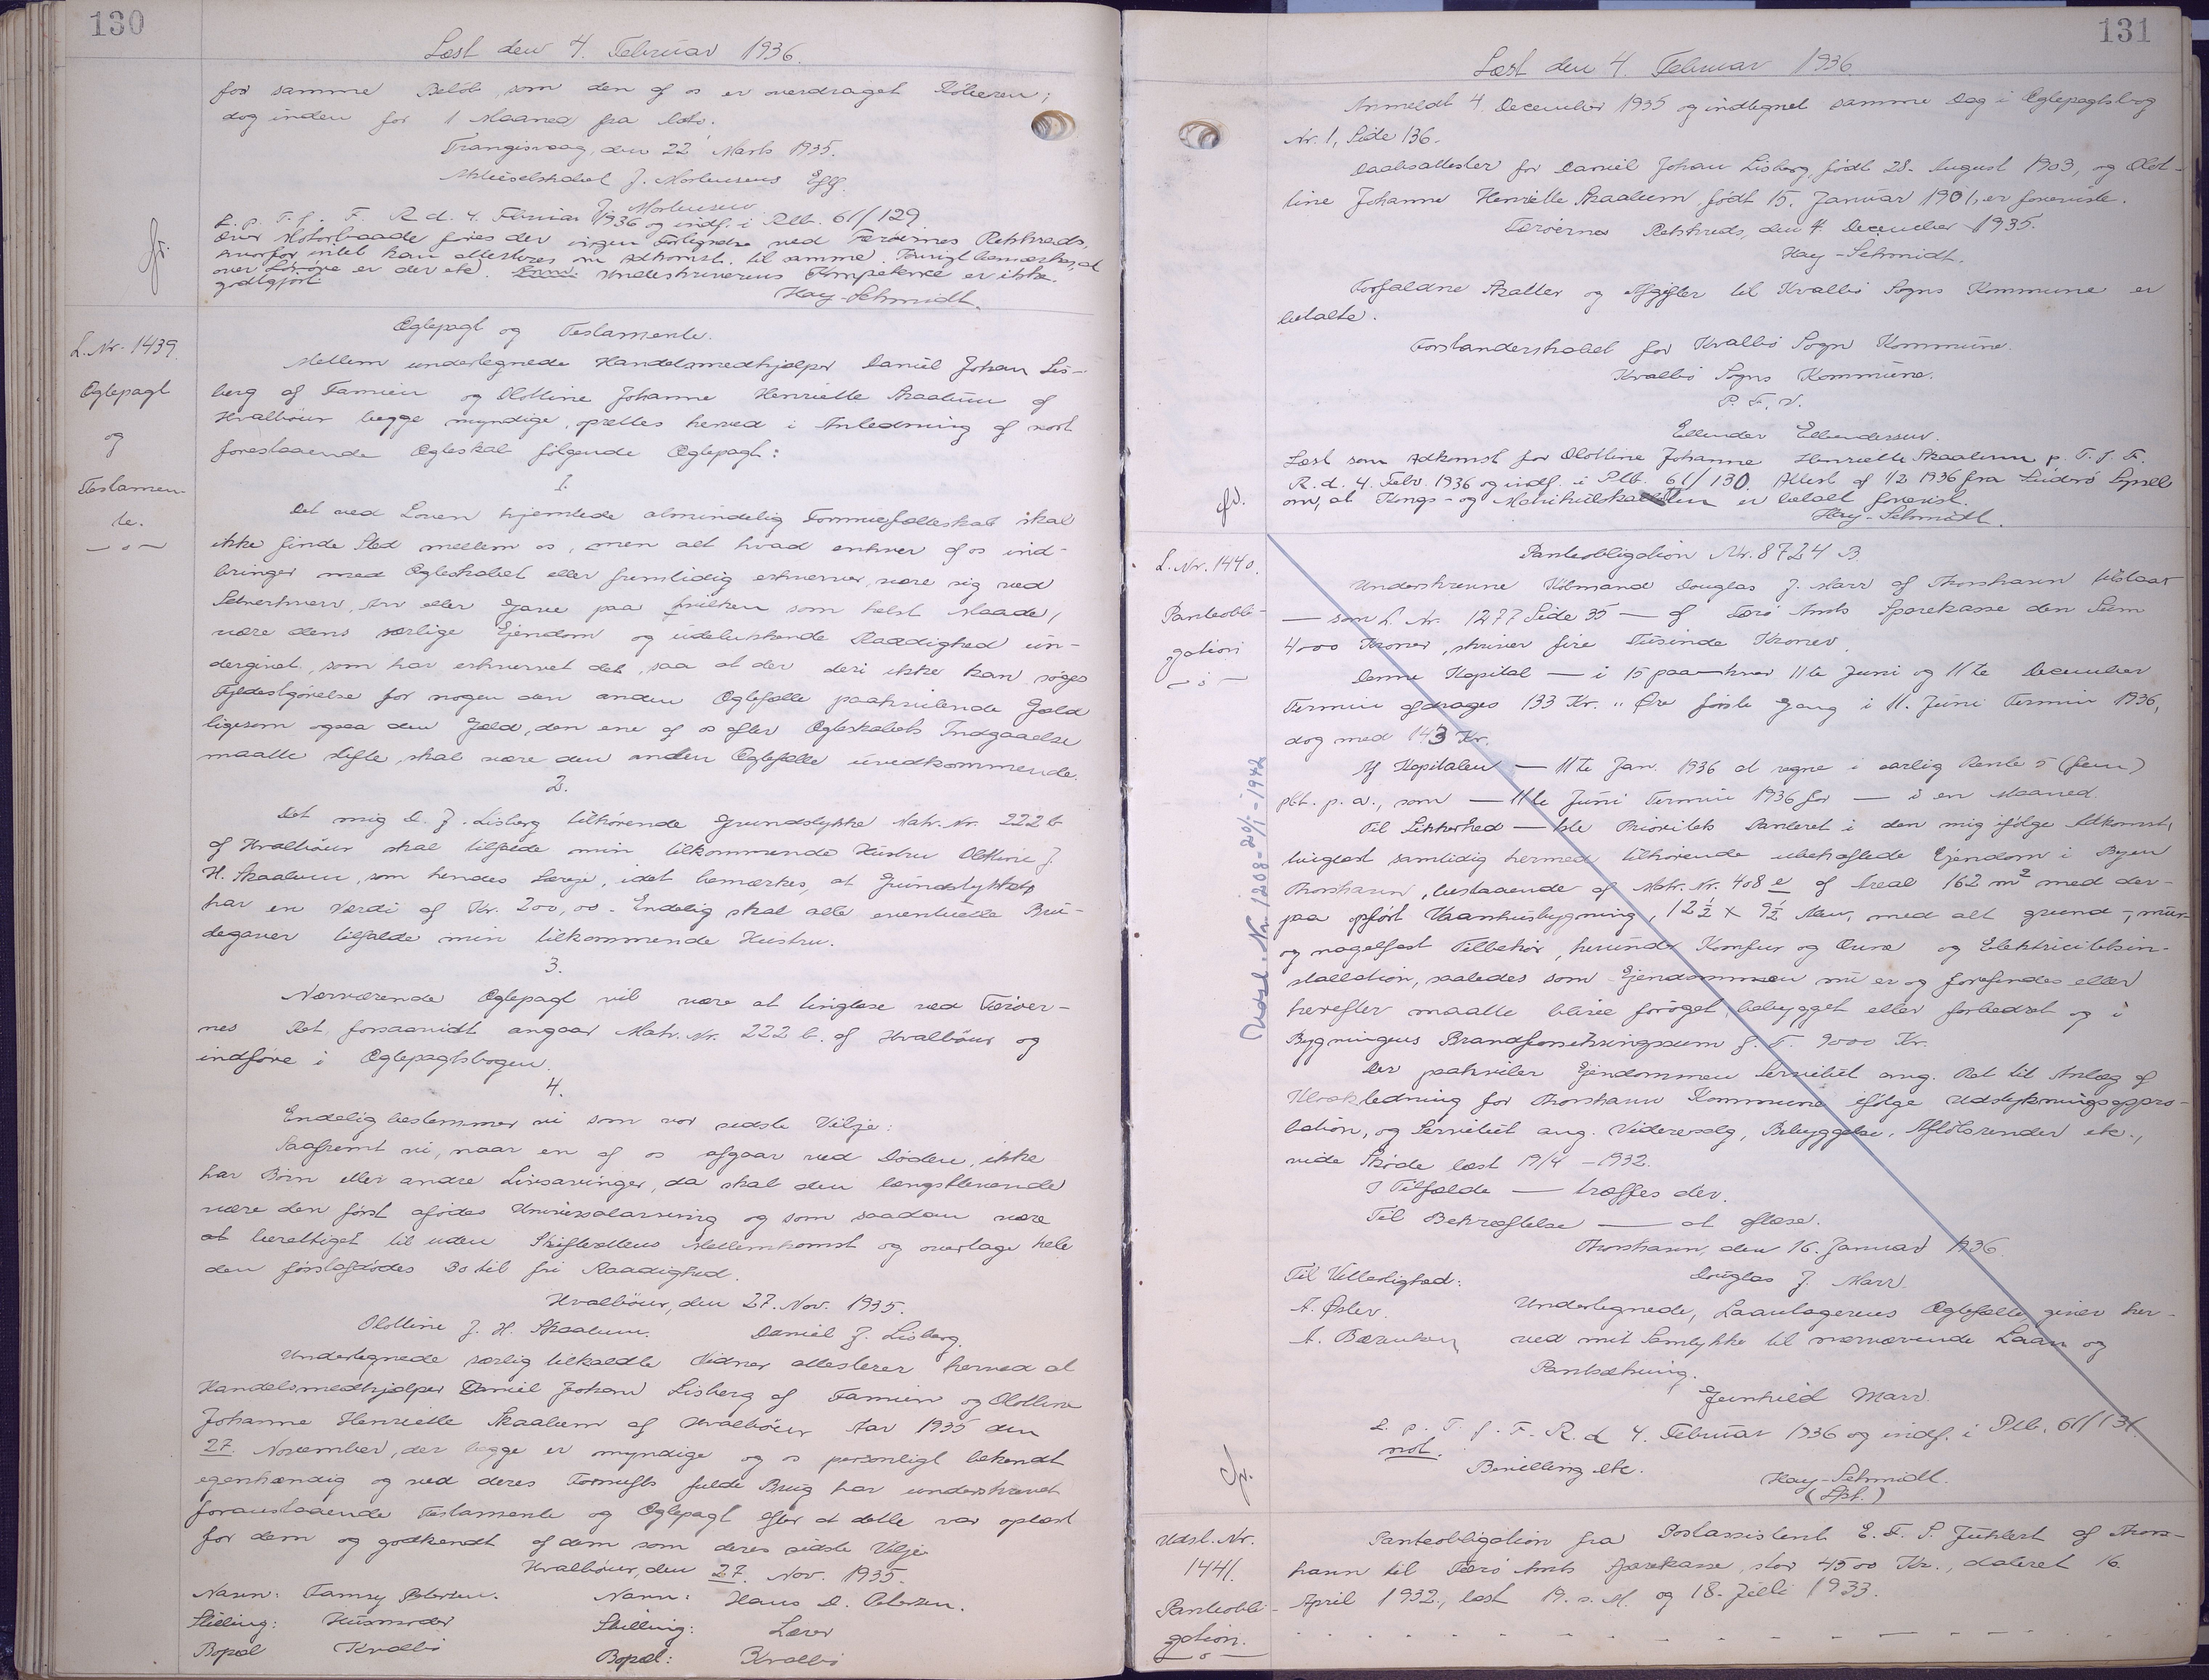 130
Læst den 4. Februar 1936.
for samme Beløb, som den af os er overdraget Køberen,
dog inden for 1 Maaned fra Dato.
Trangisvaag, den 22 Marts 1935.
Aktieselskabet J. Mortensens Eftf.
J. Mortensen
L. p. T. f. F. R. d. 4. Februar 1936 og indf. i Ptb. 61/129
Over Motorbaade føres der ingen Fortegnelse ved Færøernes Retskreds,
hvorfor intet kan attesteres om Adkomst til samme. Øvrigt bemærkes, at
over Løsøre er der etc. Underskriverens Kompetence er ikke
godtgjort.
Hay-Schmidt.
L. Nr. 1439.
Ægtepagt
og
Testamen-
te.
Ægtepagt og Testamente.
Mellem undertegnede Handelsmedhjælper Daniel Johan Lis-
berg af Famien og Olottine Johanne Henriette Skaalum af
Hvalbøur begge myndige, oprettes herved i Anledning af vort
forestaaende Ægteskab følgende Ægtepagt:
1.
Det ved Loven hjemlede almindelig Formuefælleskab skal
ikke finde Sted mellem os, men alt hvad enhver af os ind-
bringer med Ægteskabet eller fremtidig erhverver, være sig ved
Selverhverv, Arv eller Gave paa hvilken som helst Maade,
være dens særlige Ejendom og udelukkende Raadighed un-
dergivet, som har erhvervet det, saa at der deri ikke kan søges
Fyldestgørelse for nogen den anden Ægtefælle paahvilende Gæld
ligesom ogsaa den Gæld, den ene af os efter Ægteskabets Indgaaelse
maatte stifte, skal være den anden Ægtefælle uvedkommende.
2.
Det mig D. J. Lisberg tilhørende Grundstykke Matr. Nr. 222 b
af Hvalbøur skal tilfalde min tilkommende Hustru Olottine J.
H. Skaalum, som hendes Særeje, idet bemærkes, at Grundstykket
har en Værdi af Kr. 200,00. Endelig skal alle eventuelle Bru-
degaver tilfalde min tilkommende Hustru.
3.
Nærværende Ægtepagt vil være at tinglæse ved Færøer-
nes Ret forsaavidt angaar Matr. Nr. 222 b. af Hvalbøur og
indføre i Ægtepagtsbogen.
4.
Endelig bestemmer vi som vor sidste Vilje:
Saafremt vi, naar en af os afgaar ved Døden, ikke
har Børn eller andre Livsarvinger, da skal den længstlevende
være den først afdødes Universalarving og som saadan være
at berettiget til uden Skifterettens Mellemkomst og overtage hele
den førstafdødes Bo til fri Raadighed.
Hvalbøur, den 27. Nov. 1935.
Olottine J. H. Skaalum. Daniel J. Lisberg.
Undertegnede særlig tilkaldte Vidner attesterer herved at
Handelsmedhjælper Daniel Johan Lisberg af Famien og Olottine
Johanne Henriette Skaalum af Hvalbøur Aar 1935 den
27. November, der begge er myndige og os personligt bekendt
egenhændig og ved deres Fornufts fulde Brug har underskrevet
foranstaaende Testamente og Ægtepagt efter at dette var oplæst
for dem og godkendt af dem som deres sidste Vilje
Hvalbøur, den 27. Nov. 1935.
Navn: Famny Petersen. Navn: Hans D. Petersen.
Stilling: Husmoder Stilling: Lærer
Bopæl Kvalbø Bopæl: Kvalbø
131
Læst den 4. Februar 1936.
Anmeldt 4. December 1935 og indtegnet samme Dag i Ægtepagtsbog
Nr. 1, Side 136.
Daabsattester for Daniel Johan Lisberg, født 28. August 1903, og Olot-
tine Johanne Henriette Skaalum, født 15. Januar 1901, er foreviste.
Færøernes Retskreds, den 4. December 1935.
Hay-Schmidt.
Forfaldne Skatter og Afgifter til Kvalbø Sogns Kommune er
betalte.
Forstanderskabet for Kvalbø Sogn Kommune.
Kvalbø Sogns Kommune.
P. F. V.
Ellendur Ellendersen.
Læst som Adkomst for Olottine Johanne Henriette Skaalum p. T. f. F.
R. d. 4. Febr. 1936 og indf. i Ptb. 61/130. Attest af 1/2 1936 fra Suderø Syssel
om, at Tings- og Matrikulskatten er betalt forevist.
Hay-Schmidt.
L. Nr. 1440.
Panteobli-
gation
Panteobligation Nr. 8724 B
Underskrevne Købmand Douglas J. Marr af Thorshavn tilstaar
— som L. Nr. 1277 Side 35 — af Færø Amts Sparekasse den Sum
4000 Kroner, skriver fire Tusinde Kroner.
Denne Kapital — i 15 paa hver 11te Juni og 11te December
Termin afdrages 133 Kr. " Øre første Gang i 11. Juni Termin 1936,
dog med 143 Kr.
Af Kapitalen — 11te Jan. 1936 at regne i aarlig Rente 5 (fem)
pCt. p. a., som — 11te Juni Termin 1936 for — i en Maaned.
Til Sikkerhed — 1ste Prioritets Panteret i den mig ifølge Adkomst,
tinglæst samtidig hermed tilhørende ubehæftede Ejendom i Byen
Thorshavn, bestaaende af Matr. Nr. 408 e af Areal 162 m2 med der-
paa opført Vaanhusbygning, 12½ x 9½ Alen, med alt grund-, mur-
og nagelfast Tilbehør, herunder Komfur og Ovne og Elektricitetsin-
stallation, saaledes som Ejendommen nu er og forefindes eller
herefter maatte blive forøget, bebygget eller forbedret og i
Bygningens Brandforsikringssum f. T. 9000 Kr.
Der paahviler Ejendommen Servitut ang. Ret til Anlæg af
Kloakledning for Thorshavn Kommune ifølge Udstykningsappro-
bation, og Servitut ang. Videresalg, Bebyggelse, Afløbsrender etc.,
vide Skøde læst 19/4 - 1932.
I Tilfælde — træffes der.
Til Bekræftelse — at aflæse.
Thorshavn, den 16. Januar 1936.
Til Vitterlighed: Douglas J. Marr.
A. Øster. Undertegnede, Laantagerens Ægtefælle giver her-
A. Bærentsen ved mit Samtykke til nærværende Laan og
Pantsætning.
Gunhild Marr.
L. p. T. f. F. R. d. 4. Februar 1936 og indf. i Ptb. 61/131.
not.
Bevilling etc. Hay-Schmidt.
Udsl. Nr. 1208 - 20/1 - 1942
Udsl. Nr.
1441.
Panteobli-
gation.
Panteobligation fra Postassistent E. F. S. Juhlert af Thors-
havn til Færø Amts Sparekasse, stor 4500 Kr., dateret 16.
April 1932, læst 19. s. M. og 18. Juli 1933.